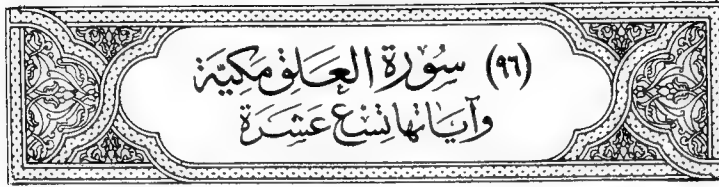 (٩٦) سُورَة العَلق مَكيَّة
وَآيَاتها تِسْعَ عَشَرَة